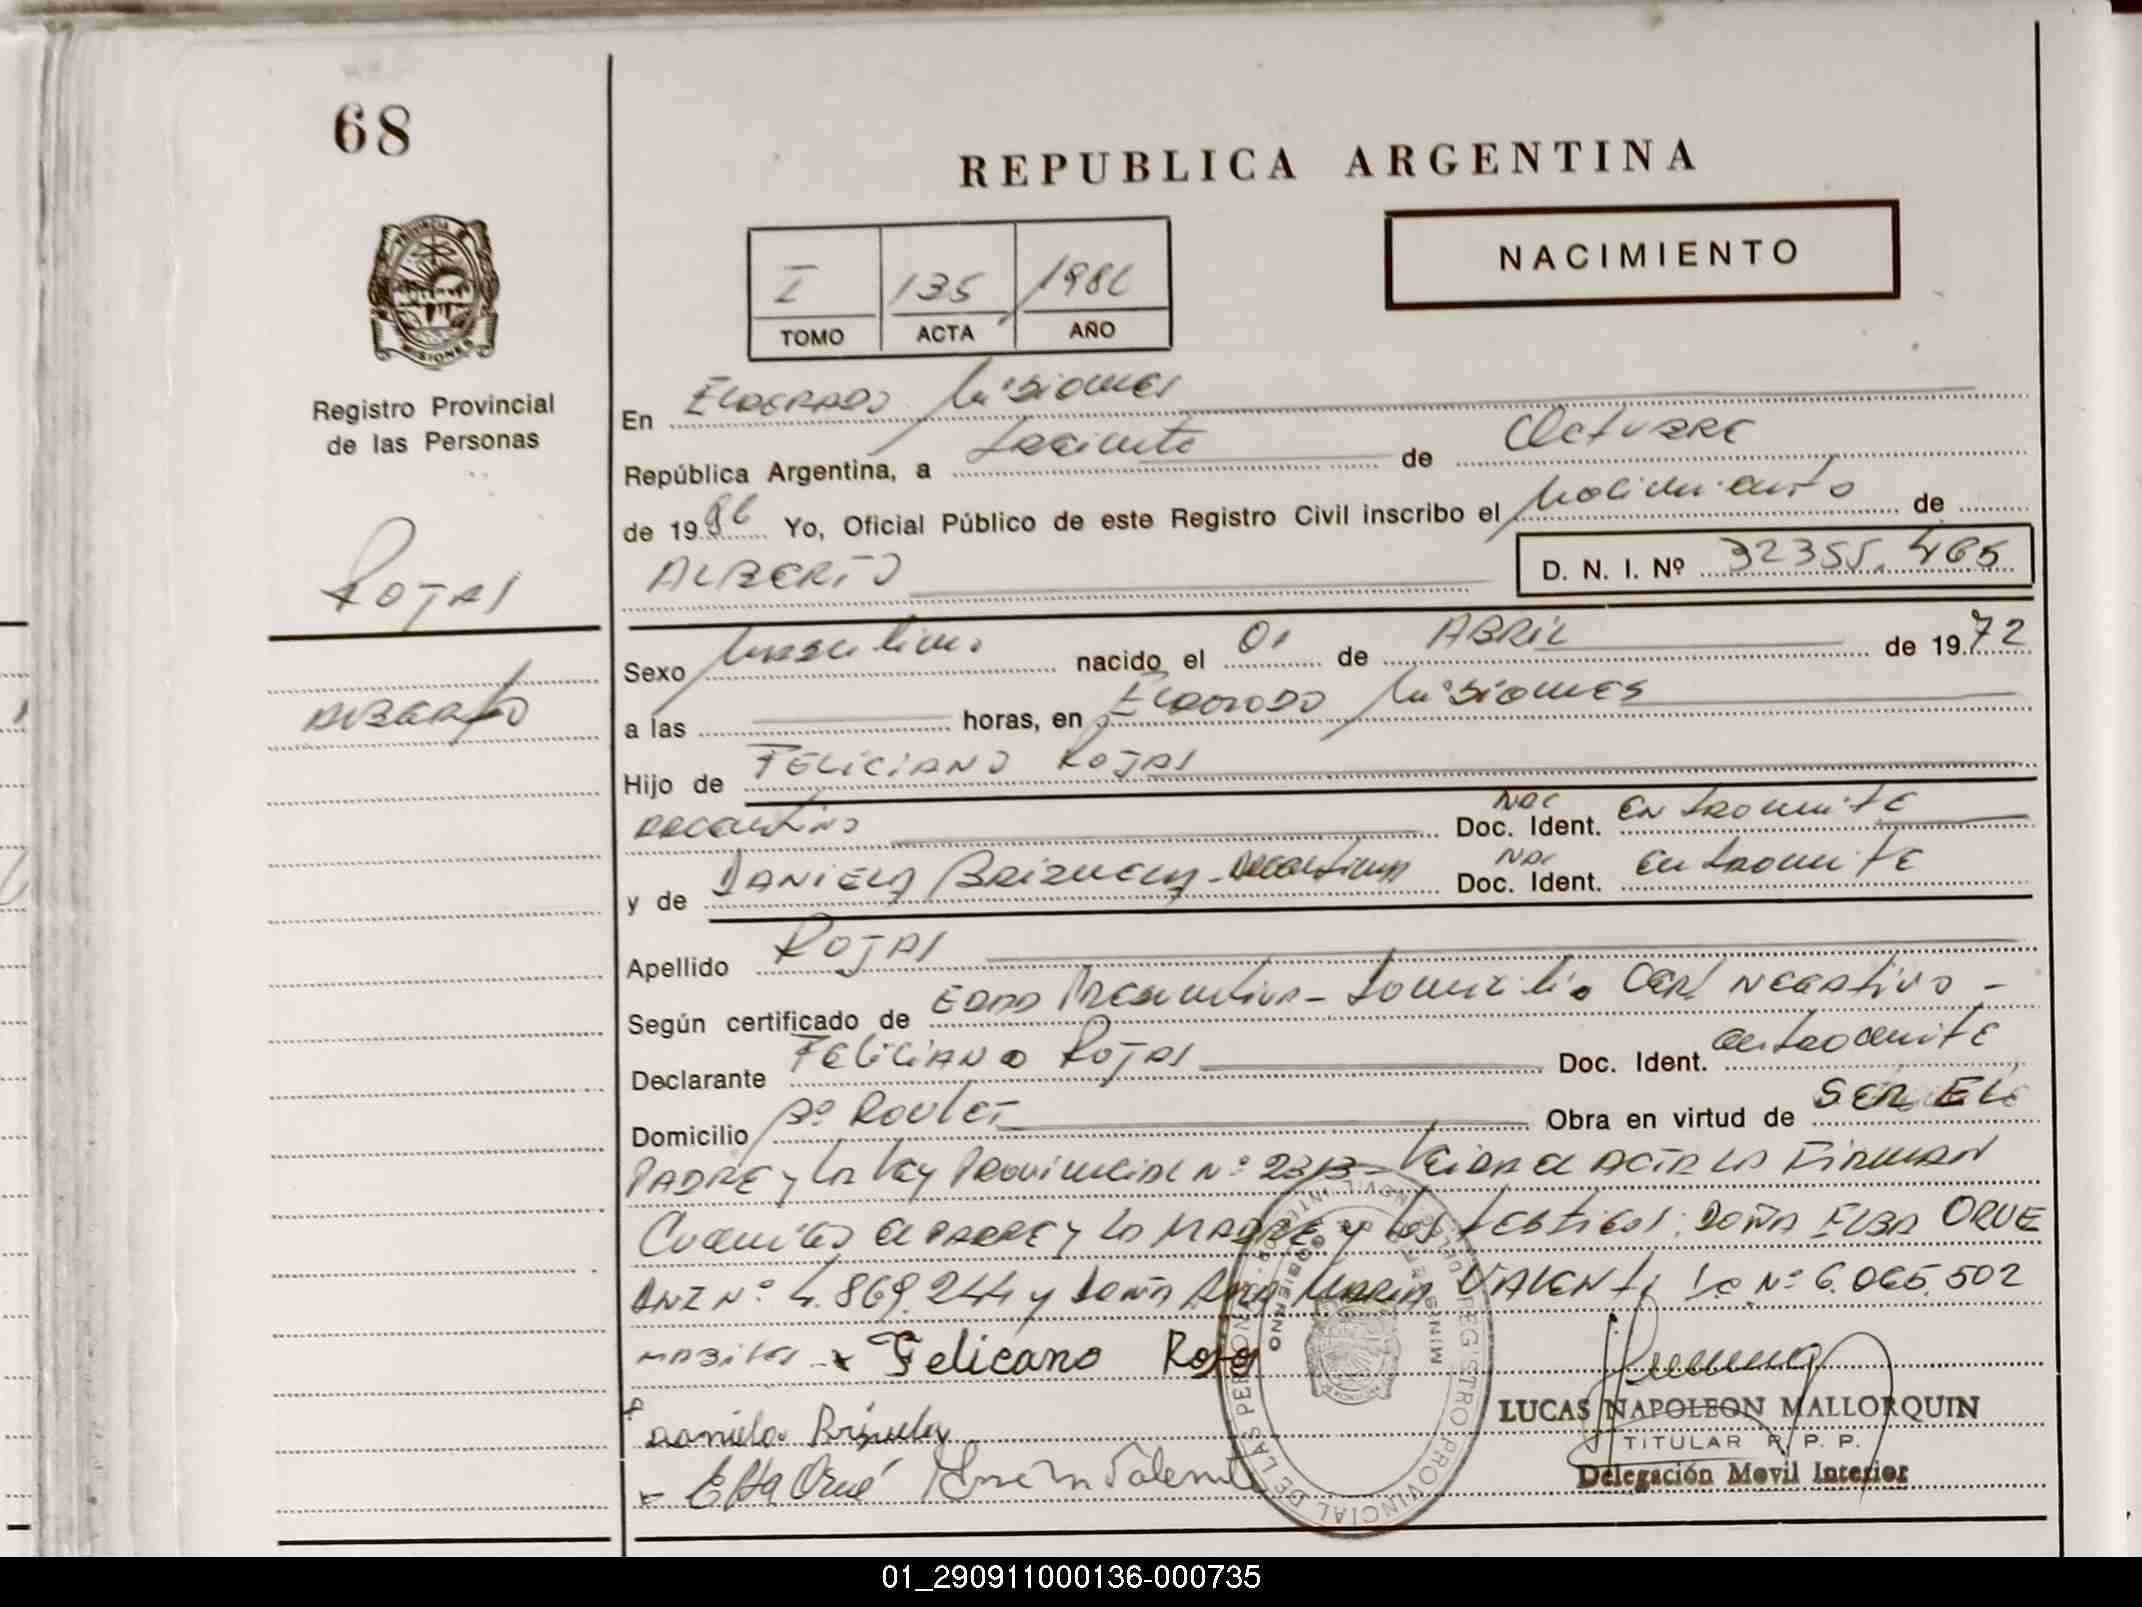 68
REPUBLICA ARGENTINA
NACIMIENTO
I 135 1986
TOMO ACTA AÑO
PROVINCIA DE
MISIONES
Registro Provincial
de las Personas
ROJAS
ALBERTO
En ELDORADO Misiones
República Argentina, a de Octubre
de 1986 Yo, Oficial Público de este Registro Civil inscribo el Nacimiento de
ALBERTO D. N. I. Nº 32355.465
Sexo Masculino nacido el 01 de ABRIL de 1972
a las horas, en Eldorado Misiones
Hijo de FELICIANO ROJAS
Argentino Doc. Ident. NAC En tramite
y de DANIELA BRIZUELA - Argentina Doc. Ident. NAC En tramite
Apellido ROJAS
Según certificado de EDAD Presuntiva - Domicilio Cert Negativo -
Declarante FELICIANO ROJAS Doc. Ident. en tramite
Domicilio Bº Roulet Obra en virtud de SER EL
PADRE y la Ley Provincial Nº 2313 - Leida el ACTA la FIRMAN
el PADRE y la MADRE y los testigos: DOÑA ELBA ORUE
DNI Nº 4.869.244 y Doña Ana Maria VALENTI Lc Nº 6.065.502
habiles - x Felicano Rojas
x Daniela Brizuela
x Elba Orué Ana M Valenti
LUCAS NAPOLEON MALLORQUIN
TITULAR R. P. P.
Delegación Movil Interior
REGISTRO PROVINCIAL DE LAS PERSONAS
01_290911000136-000735